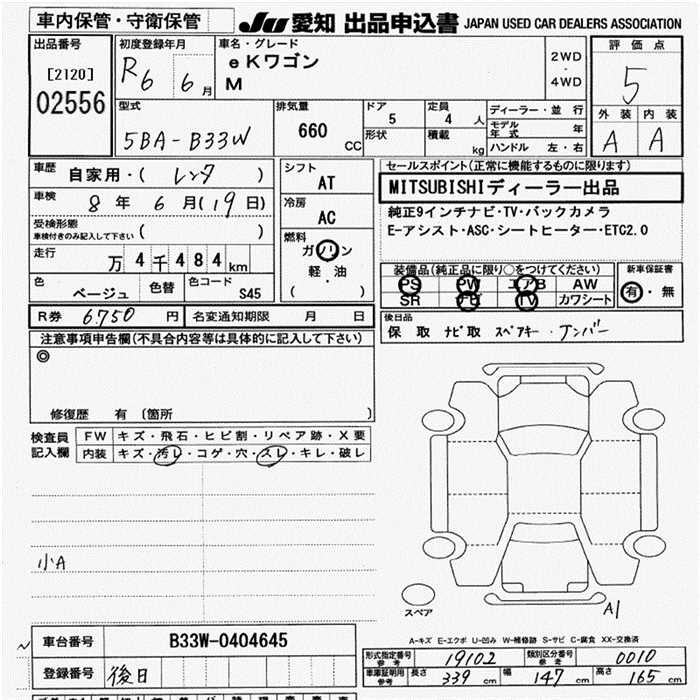 車内保管・守衛保管
JU 愛知 出品申込書 JAPAN USED CAR DEALERS ASSOCIATION
出品番号
[2120]
02556
初度登録年月
R6 6月
車名・グレード
eKワゴン
M
2WD
・
4WD
評価点
5
外装 内装
A A
型式
5BA-B33W
排気量
660 CC
ドア
5
形状
定員
4 人
積載
kg
ディーラー・並行
モデル年式 年
ハンドル 左・右
車歴
自家用・( レンタ )
車検
8年 6月(19日)
受検形態
車検付きのみ記入して下さい ( )
走行
万4千484km
色
ベージュ
色替
色コード
S45
シフト
AT
冷房
AC
燃料
ガソリン
軽・油
( )
セールスポイント(正常に機能するものに限ります)
MITSUBISHIディーラー出品
純正9インチナビ・TV・バックカメラ
E-アシスト・ASC・シートヒーター・ETC2.0
装備品(純正品に限り○をつけてください)
PS PW エアB AW
SR ナビ TV カワシート
新車保証書
有・無
R券 6750 円
名変通知期限 月 日
後日品
保 取 ナビ取 スペアキー・ナンバー
注意事項申告欄(不具合内容等は具体的に記入して下さい)
◎
修復歴 有 〔箇所 〕
検査員
記入欄
FW キズ・飛石・ヒビ割・リペア跡・X要
内装 キズ・汚レ・コゲ・穴・スレ・キレ・破レ
小A
スペア
A1
A-キズ E-エクボ U-凹み W-補修跡 S-サビ C-腐食 XX-交換済
車台番号 B33W-0404645
登録番号 後日
形式指定番号
参考
19102
類別区分番号
参考
0010
車庫証明用
参考
長さ 339 cm 幅 147 cm 高さ 165 cm